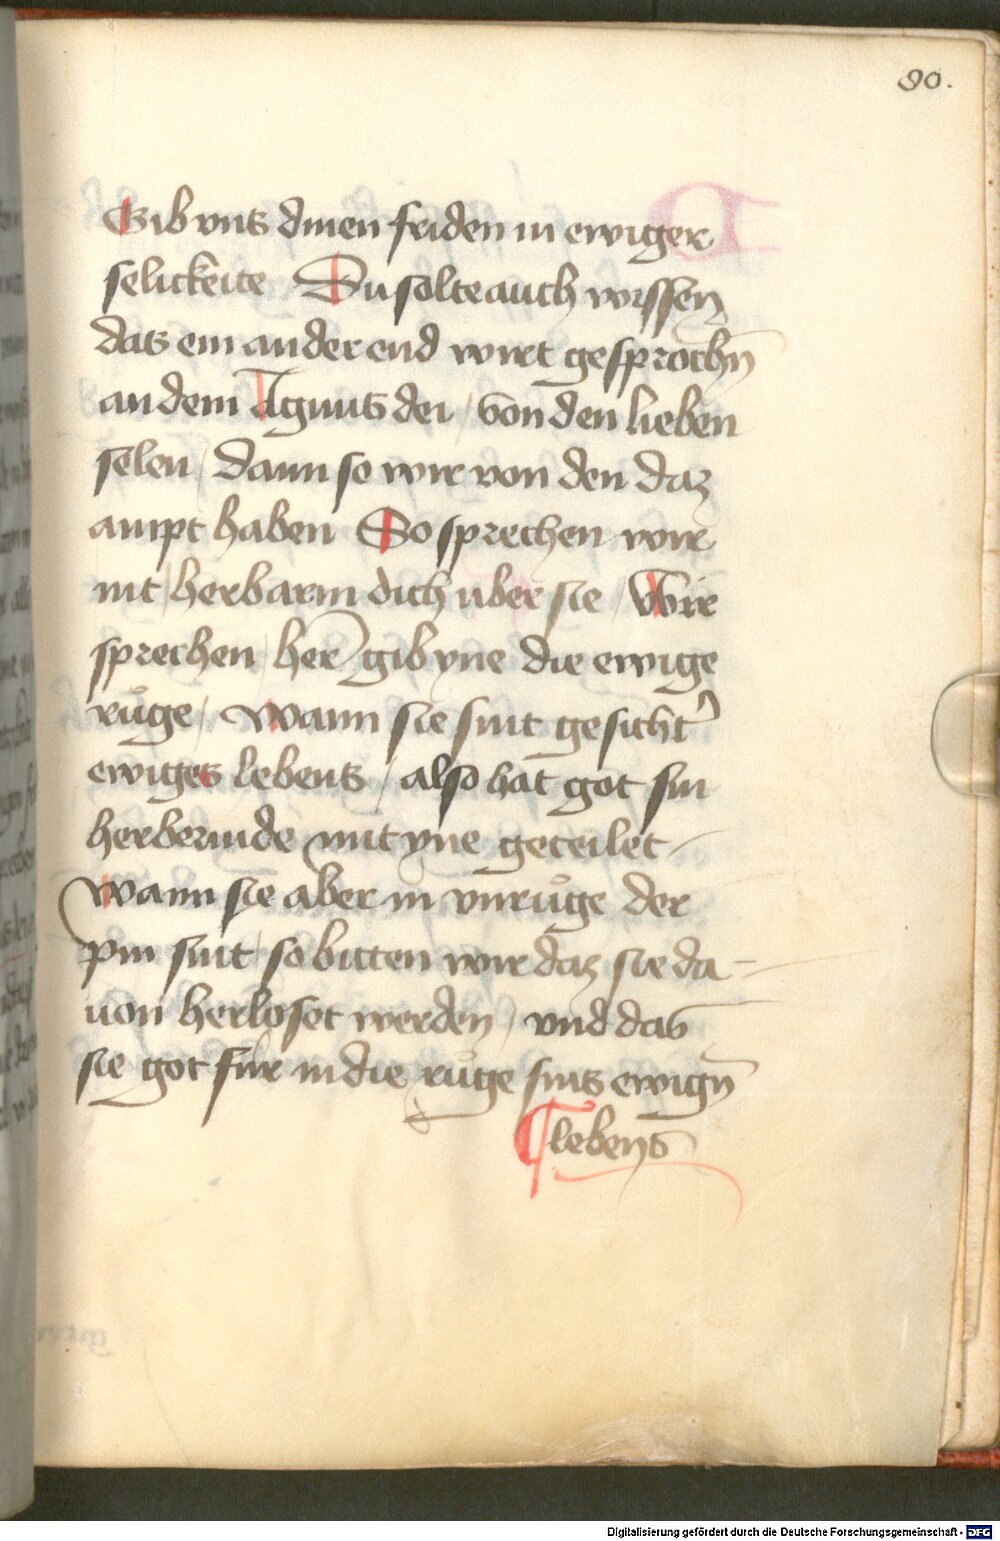 90.
Gib vns dinen friden in ewiger
selickeite Du solte auch wyssen
das ein ander end wirt gesproch̄n
an dem Agnus dei / von den lieben
selen / dann so wir von den daz
ampt haben So sprechen wir
nit / herbarm dich uber sie / Wir
sprechen / her̄ gib yne die ewige
růge / wann sie sint gesicht'
ewiges lebens / also hat got sin
herbermde mit yne geteilet
wann sie aber in vnrůge der
pin sint / so bitten wir daz sie da-
uon herloset werden / vnd das
sie got für in die růge sins ewign̄
¶ lebens
Digitalisierung gefördert durch die Deutsche Forschungsgemeinschaft - DFG